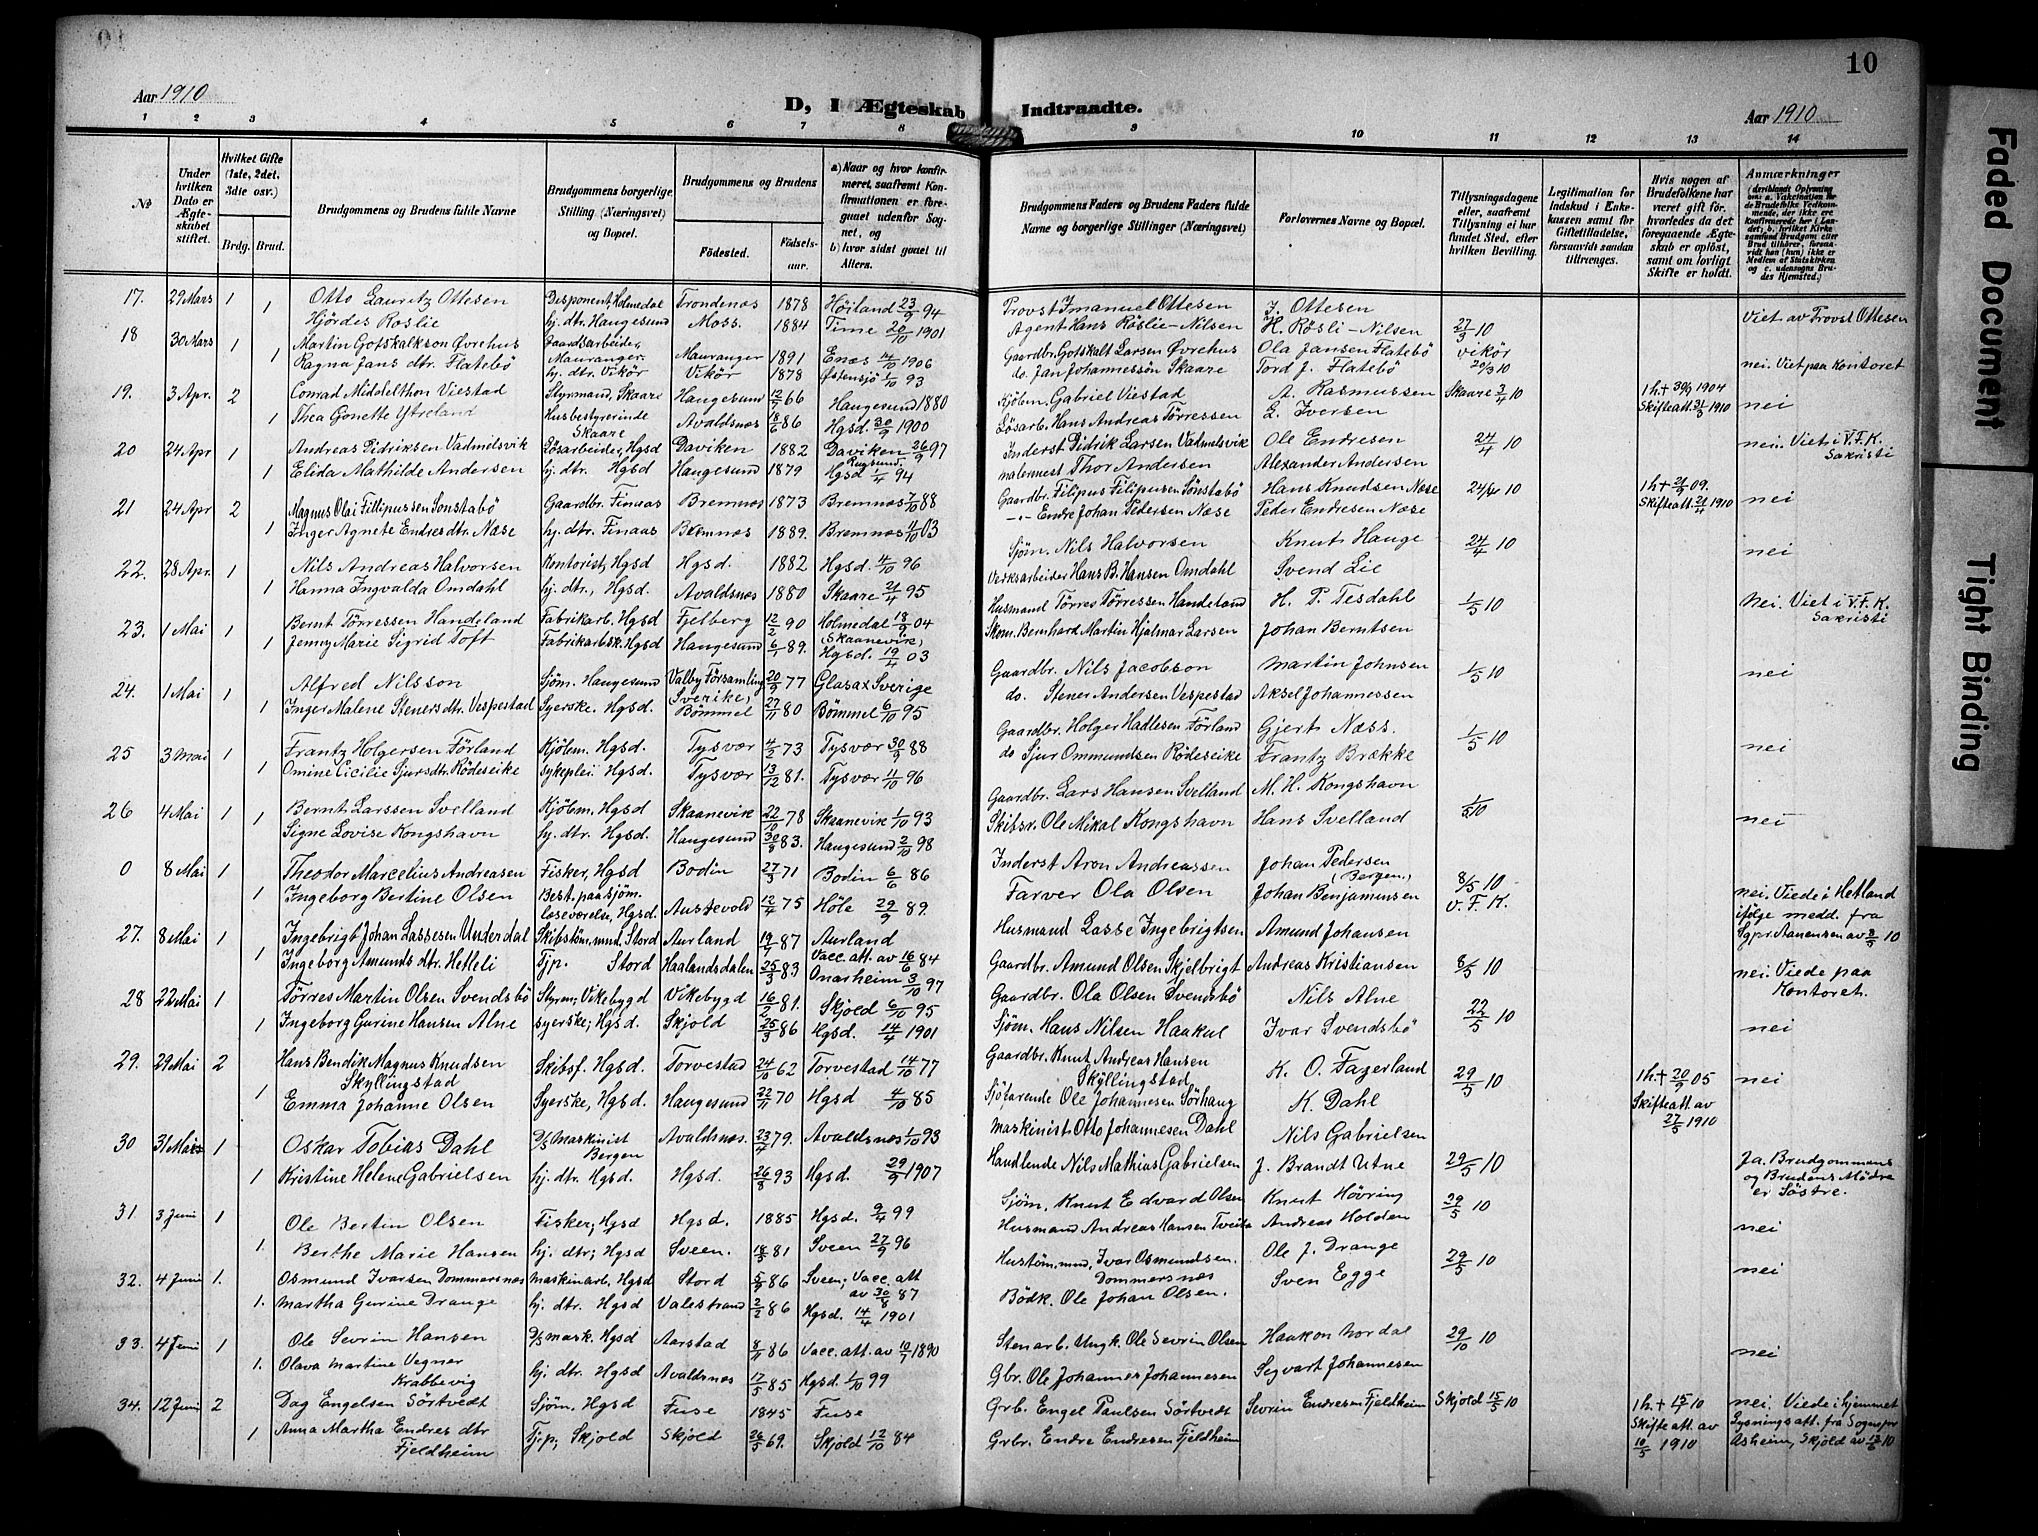 10
Aar 1910
D, I Ægteskab Indtraadte.
Aar 1910
1 2 3 4 5 6 7 8 9 10 11 12 13 14
No
Under hvilken Dato er Ægteskabet stiftet.
Hvilket Gifte (1ste, 2det, 3die osv.)
Brdg. Brud.
Brudgommens og Brudens fulde Navne
Brudgommens borgerlige Stilling (Næringsvei) og Bopæl.
Brudgommens og Brudens
Födested. Födsels-aar.
a) Naar og hvor konfirmeret, saafremt Konfirmationen er foregaaet udenfor Sognet, og
b) hvor sidst gaaet til Alters.
Brudgommens Faders og Brudens Faders fulde Navne og borgerlige Stillinger (Næringsvei)
Forlovernes Navne og Bopæl.
Tillysningsdagene eller, saafremt Tillysning ei har fundet Sted, efter hvilken Bevilling.
Legitimation for Indskud i Enkekassen samt for Giftetilladelse, forsaavidt saadan tiltrænges.
Hvis nogen af Brudefolkene har været gift för, hvorledes da det foregaaende Ægteskab er oplöst, samt om lovligt Skifte er holdt.
Anmærkninger
17. 29 Mars 1 Otto Lauritz Ottesen Desponent, Holmedal Trondenæs 1878 Höiland 23/9 94 Provst Imanuel Ottesen J. Ottesen Viet av Provst Ottesen
1 Hjördes Roslie hj. dtr. Haugesund Moss. 1884 Time 20/10 1901 Agent Hans Röslie-Nilsen H. Rösli-Nilsen 27/3 10
18 30 Mars 1 Martin Gotskalkson Øvrehus Gaardsarbeider, Mauranger. Mauranger 1891 Enæs 14/10 1906 Gaardbr. Gotskalk Larsen Øvrehus Ola Jansen Flatebö Vikör 20/3 10 nei. Viet paa Kontoret
1 Ragna Jans dtr. Flatebö hj. dtr. Vikör Vikör 1878 Østensjö 1/10 93 do. Jan Johannessön Skaare Tord J. Flatebö
19. 3 Apr. 2 Conrad Middelthon Viestad Styrmand, Skaare Haugesund 12/7 66 Haugesund 1880 Kjöbm. Gabriel Viestad A. Rasmussen Skaare 3/4 10 1 h. + 30/9 1904 Skifteatt. 31/3 1910 nei
1 Thea Gonette Ytreland Husbestyrerinde Skaare Avaldsnes 18/6 86 Hgsd. 30/9 1900 Lösarb. Hans Andreas Törressen L. Iversen
20 24 Apr 1 Andreas Didriksen Vadmelsvik Lösarbeider, Hgsd Daviken 1882 Daviken 26/9 97 Rugsund. Inderst Didrik Larsen Vadmelsvik Ole Endresen 24/4 10 nei. Viet i V.F.K. Sakristi
1 Elida Mathilde Andersen hj. dtr. Hgsd Haugesund 1879 Hgsd 1/4 94 malermest Thor Andersen Alexander Andersen
21 24 Apr 2 Magnus Olai Fillipussen Sönstabö Gaardbr. Finaas Bremnes 1873 Bremnæs 7/10 88 Gaardbr. Filipus Filipusen Sönstabö Hans Knudsen Næse 24/4 10 1 h + 21/9 09. Skifteatt. 21/4 1910 nei
1 Inger Agnete Endres dtr. Næse hj. dtr. Finaas Bremnæs 1889. Bremnæs 4/10 03 -"- Endre Johan Pedersen Næse Peder Endresen Næse
22. 28 Apr. 1 Nils Andreas Halvorsen Kontorist, Hgsd Hgsd. 1882 Hgsd. 4/10 96 Sjöm. Nils Halvorsen Knut Hauge 24/4 10 nei
1 Hanna Ingvalda Omdahl hj. dtr., Hgsd. Avaldsnæs 1880 Skaare 21/4 95 Verksarbeider Hans B. Hansen Omdahl Svend Lie
23. 1 Mai 1 Bernt Törressen Handeland Fabrikarb. Hgsd Fjelberg 12/2 90 Holmedal 18/9 04 (Skaanevik) Husmand Törres Törressen Handeland H. P. Tesdahl 1/5 10 Nei. Viet i V.F.K. Sakristi
1 Jenny Marie Sigrid Toft Fabrikarbsk. Hgsd Haugesund 6/1 89. Hgsd. 19/4 03 Skom. Bernhard Martin Hjalmar Larsen Johan Berntsen
24. 1 Mai 1 Alfred Nilsson Sjöm. Haugesund Valby Församling Sverike, 20/9 77 Glasax Sverige Gaardbr. Nils Jacobson Martin Johnsen 1/5 10 nei
1 Inger Malene Steners dtr. Vespestad Syerske. Hgsd. Bömmel 27/11 80 Bömmel 6/10 95 do. Stener Andersen Vespestad Aksel Johannessen
25 3 Mai 1 Frantz Holgersen Förland Kjölem. Hgsd. Tysvær 4/2 73 Tysvær 30/9 88 Gaardbr. Holger Hadlesen Förland Gjert Næss. 1/5 10 nei
1 Omine Cicilie Sjursdtr. Rödeseike sykeplei Hgsd. Tysvær 13/12 81. Tysvær 11/10 96 do Sjur Ommundsen Rödeseike Frantz Brække
26 4 Mai 1 Bernt Larssen Svelland Kjölem. Hgsd Skaanevik 22/10 78 Skaanevik 1/10 93 Gaardbr. Lars Hansen Svelland M. H. Kongshavn 1/5 10 nei
1 Signe Lovise Kongshavn hj. dtr. Hgsd. Haugesund 30/9 83. Haugesund 2/10 98 Skibsr. Ole Mikal Kongshavn Hans Svelland
0 8 Mai 1 Theodor Marcelius Andreasen Fisker, Hgsd Bodin 27/3 71 Bodin 6/6 86 Inderst Aron Andreassen Johan Pedersen (Bergen) 8/5 10 V.F.K. nei. Viede i Hetland ifölge medd. fra Sgpr. Aanensen av 8/5 10
1 Ingeborg Bertine Olsen Best. paa sjöm. læseværelse, Hgsd. Austevold 12/4 75 Höle 29/9 89. Farver Ola Olsen Johan Benjaminsen
27. 8 Mai 1 Ingebrigt Johan Lassesen Underdal Skibstöm.mnd, Stord Aurland 19/7 87 Aurland Husmand Lasse Ingebrigtsen Amund Johansen
1 Ingeborg Amunds dtr. Hetleli Tjp. Stord Haalandsdalen 25/3 83 Vacc. att. av 16/6 84 Onarheim 3/10 97 Gaardbr. Amund Olsen Skjelbrigt Andreas Kristiansen 8/5 10 nei. Viede paa Kontoret.
28 22 Mai 1 Törres Martin Olsen Svendsbö Styrm, Vikebygd Vikebygd 16/2 81. Skjold 6/10 95 Gaardbr. Ola Olsen Svendsbö Nils Alne 22/5 10 nei
1 Ingeborg Gurine Hansen Alne syerske, Hgsd. Skjold 25/3 86 Hgsd. 14/4 1901 Sjöm. Hans Nilsen Haakul Ivar Svendsbö
29. 29 Mai 2 Hans Bendik Magnus Knudsen Skyllingstad Skibsf. Hgsd. Torvestad 24/10 62 Torvestad 14/10 77 Gaardbr. Knut Andreas Hansen Skyllingstad K. O. Fagerland 29/5 10 1 h. + 20/9 05 Skifteatt. av 27/5 1910 nei
1 Emma Johanne Olsen Syerske, Hgsd. Haugesund 22/11 70 Hgsd 4/10 85 Sjöfarende Ole Johannesen Sörhaug K. Dahl
30 31 Mai 1 Oskar Tobias Dahl D/s maskinist Bergen Avaldsnæs. 23/4 79. Avaldsnæs 1/10 93 Maskinist Otto Johannesen Dahl Nils Gabrielsen
1 Kristine Helene Gabrielsen hj. dtr. Hgsd. Hgsd. 26/8 93 Hgsd. 29/9 1907 Handlende Nils Mathias Gabrielsen J. Brandt Utne 29/5 10 Ja. Brudgommens og Brudens Mödre er Söstre.
31. 3 Juni 1 Ole Bertin Olsen Fisker, Hgsd Hgsd. 1885 Hgsd. 9/4 99 Sjöm. Knut Edvard Olsen Knut Hövring 29/5 10 nei
1. Berthe Marie Hansen hj. dtr, Hgsd Sveen. 18/5 81 Sveen 27/9 96 Husmand Andreas Hansen Tveita Andreas Holden
32. 4 Juni 1. Osmund Ivarsen Dommersnæs Maskinarb, Hgsd Stord 5/9 86 Sveen, Vacc. att av 30/8 87 Hustöm.mnd, Ivar Osmundsen Dommersnæs Ole J. Drange 29/5 10 nei
1. Martha Gurine Drange hj. dtr. Hgsd Valestrand 2/2 86 Hgsd. 14/4 1901 Bödk. Ole Johan Olsen. Sven Egge
33. 4 Juni 1 Ole Sevrin Hansen D/s mask. Hgsd Aarstad 8/11 86 Vacc. att. av 10/7 1890 Stenarb. Ungk. Ole Sevrin Olsen Haakon Nordal 29/10 10 nei
1. Olava Martine Vegner Krabbevig hj. dtr. Hgsd Avaldsnæs 17/5 85 Hgsd. 1/10 99 Gbr. Ole Johannes Johannesen Segvart Johannesen
34. 12 Juni 2 Dag Engelsen Sörtvedt Sjöm. Hgsd Fuse 1845 Fuse Grb. Engel Paulsen Sörtvedt Sevrin Endresen Fjeldheim Skjold 15/5 10 1 h + 15/1 10 Skifteatt. av 10/5 1910 nei. Viede i hjemmet Lysningsatt. fra Sognepr Asheim, Skjold av 12/6 10
1 Anna Martha Endres dtr Fjeldheim Tjp, Skjold Skjold 26/5 69. Skjold 12/10 84 Grbr. Endre Endresen Fjeldheim
Faded Document
Tight Binding